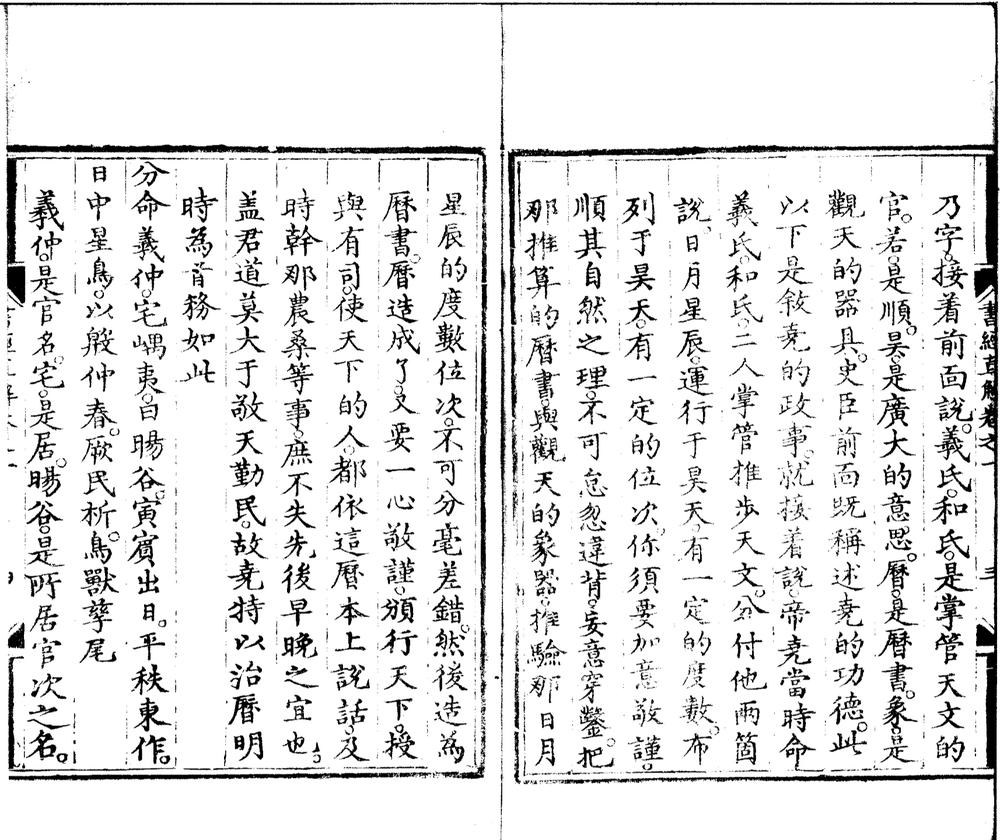 書經直解卷之一
三
乃字。接着前面說。羲氏。和氏。是掌管天文的
官。若。是順。昊。是廣大的意思。曆。是曆書。象。是
觀天的器具。史臣前面既稱述堯的功德。此
以下是敘堯的政事。就接着說。帝堯當時命
羲氏。和氏。二人掌管推步天文。分付他兩箇
說。日月星辰。運行于昊天。有一定的度數。布
列于昊天。有一定的位次。你須要加意敬謹。
順其自然之理。不可怠忽違背。妄意穿鑿。把
那推算的曆書。與觀天的象器。推驗那日月
星辰的度數位次。不可分毫差錯。然後造為
曆書。曆造成了。又要一心敬謹。頒行天下。授
與有司。使天下的人。都依這曆本上說話。及
時幹那農桑等事。庶不失先後早晚之宜也。
盖君道莫大于敬天勤民。故堯持以治曆明
時為首務如此
分命羲仲。宅嵎夷。曰暘谷。寅賓出日。平秩東作。
日中星鳥。以殷仲春。厥民析。鳥獸孳尾
羲仲。是官名。宅。是居。暘谷。是所居官次之名。